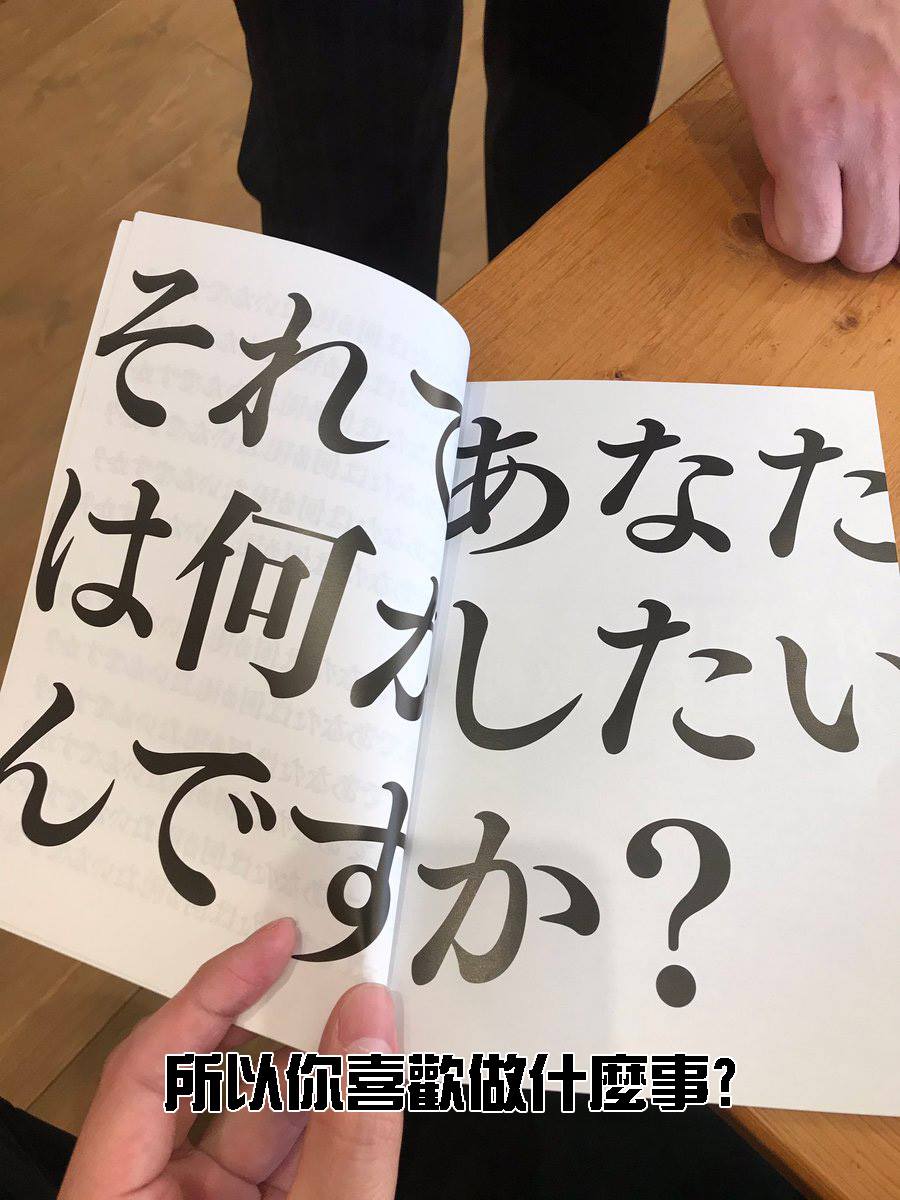 それであなた
は何がしたい
んですか?
所以你喜歡做什麼事?